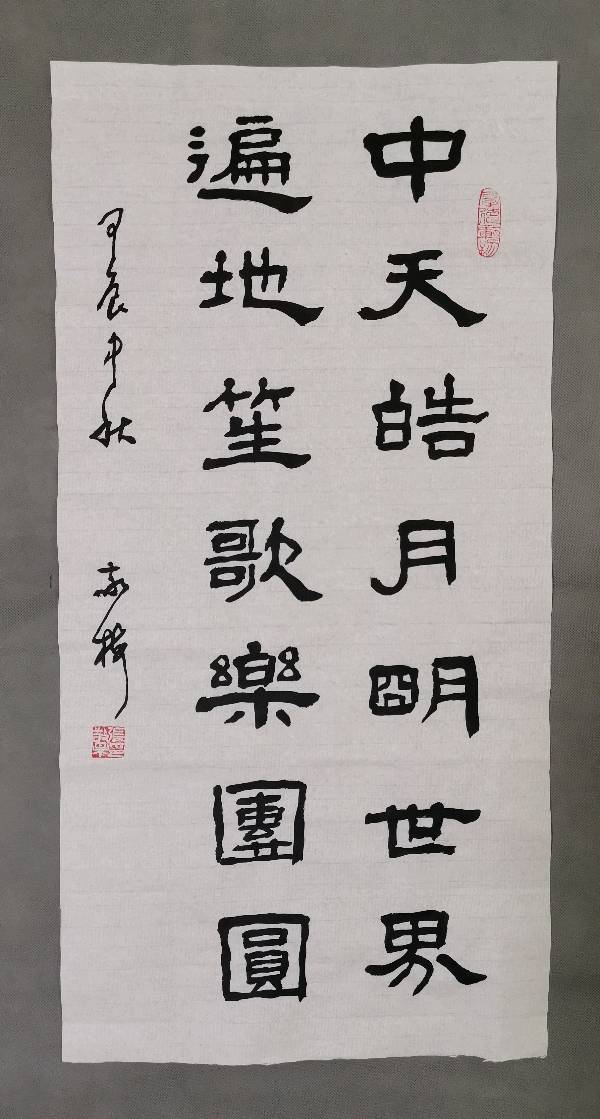 中天皓月明世界
遍地笙歌樂團圓
甲辰中秋